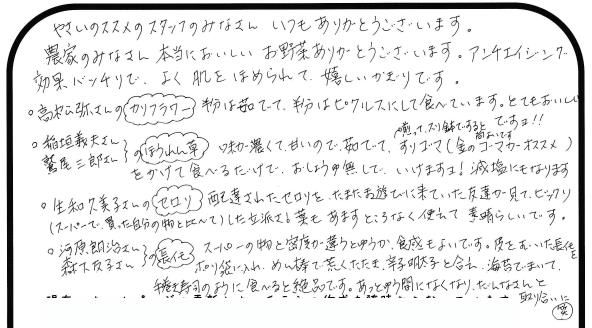 やさいのススメのスタッフのみなさん いつもありがとうございます。
農家のみなさん 本当においしい お野菜ありがとうございます。アンチエイジング
効果バッチリで、よく肌をほめられて、嬉しいかぎりです。
○高松弥さんの カリフラワー 半分は茹でて、半分はピクルスにして食べています。とてもおいしい
ですョ!!
○稲垣義夫さん
鷲尾三郎さん の ほうれん草 味が濃くて、甘いので、茹でて、すりゴマ(金のゴマーオススメ)
煎って、スリ鉢ですると
をかけて食べるだけで、おしょうゆ無しで、いけますよ! 減塩にもなります
○生和久美子さんの セロリ 配達されたセロリを、たまたまお遊びに来ていた友達が見て、ビックリ
(スーパーで、買った自分の物と比べて)した立派さ! 葉も あますところなく使えて 素晴らしいです。
○河原朗治さん
森下友子さん の 長芋 スーパーの物と密度が違うとゆうか、食感もよいです。皮をむいた長芋を
ポリ袋に入れ、めん棒で荒くたたき、辛子明太子と合え、海苔でまいて、
手巻き寿司のように食べると絶品です。あっとゆう間になくなり、だんなさんと
取り合いに
笑